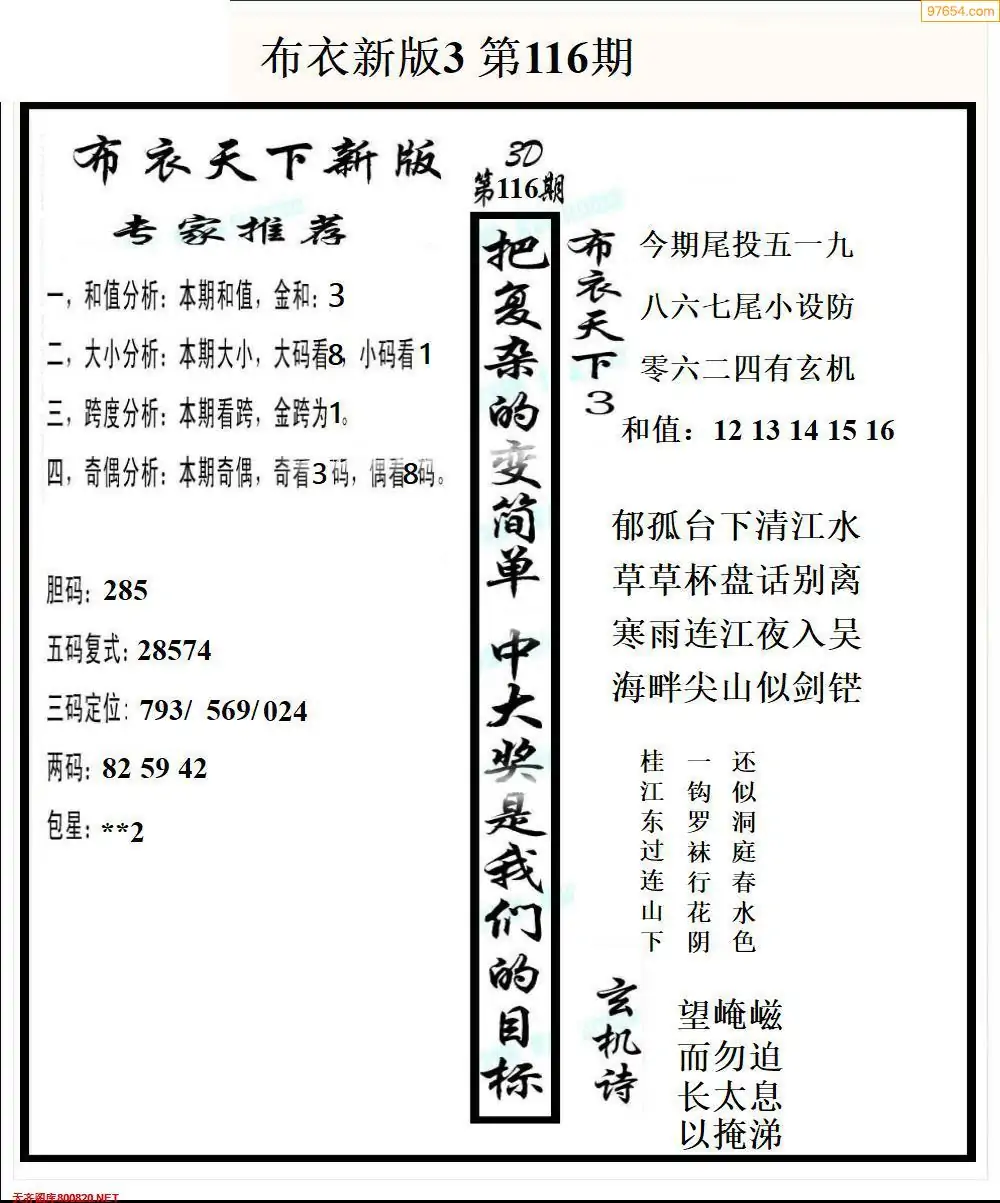 97654.com
布衣新版3 第116期
布衣天下新版
专家推荐
一，和值分析：本期和值，金和：3
二，大小分析：本期大小，大码看8，小码看1
三，跨度分析：本期看跨，金跨为1。
四，奇偶分析：本期奇偶，奇看3码，偶看8码。
胆码：285
五码复式：28574
三码定位：793/ 569/024
两码：82 59 42
包星：**2
3D
第116期
把复杂的变简单 中大奖是我们的目标
布衣天下3
今期尾投五一九
八六七尾小设防
零六二四有玄机
和值：12 13 14 15 16
郁孤台下清江水
草草杯盘话别离
寒雨连江夜入吴
海畔尖山似剑铓
还似洞庭春水色
一钩罗袜行花阴
桂江东过连山下
玄机诗
望崦嵫
而勿迫
长太息
以掩涕
天齐图库800820.NET